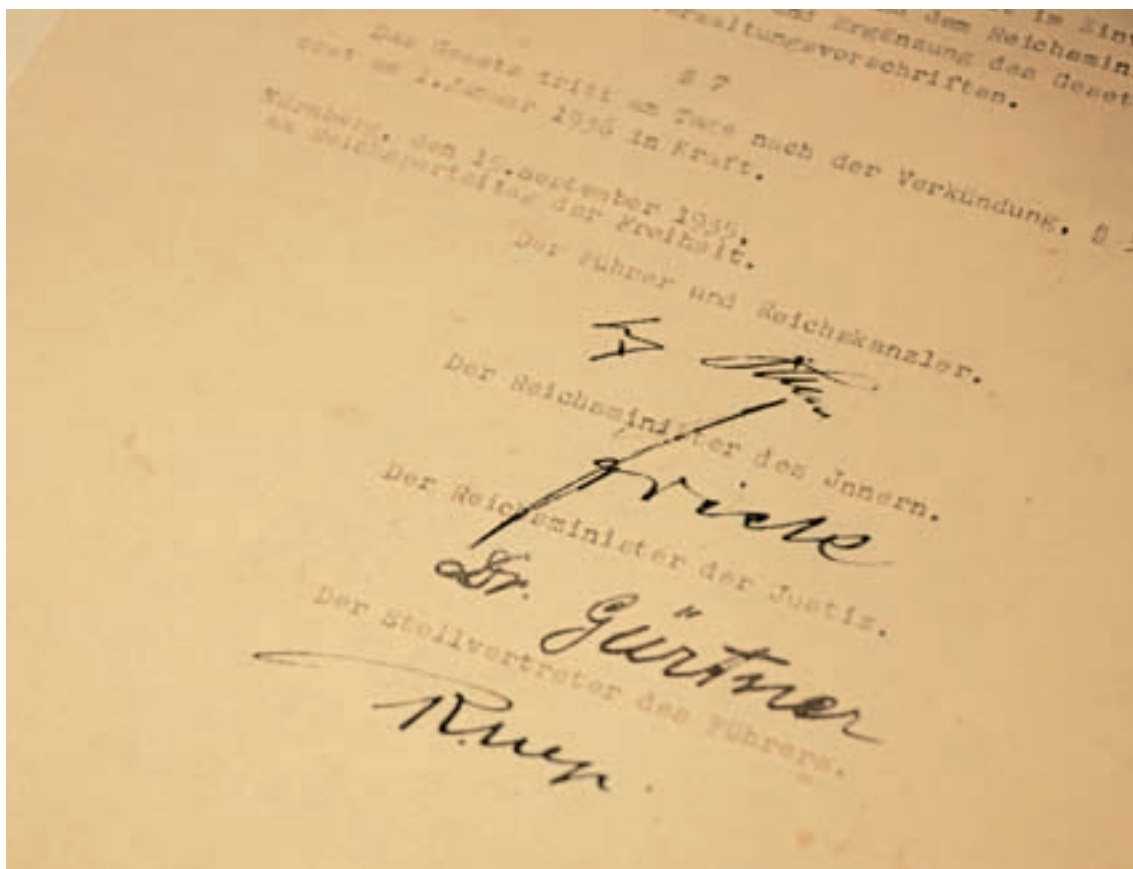 im Einv
dem Reichsmin
und Ergänzung des Geset
rwaltungsvorschriften.
§ 7
Das Gesetz tritt am Tage nach der Verkündung, §
erst am 1. Januar 1936 in Kraft.
Nürnberg, den 15. September 1935,
am Reichsparteitag der Freiheit.
Der Führer und Reichskanzler.
Der Reichsminister des Jnnern.
Frick
Der Reichsminister der Justiz.
Dr. Gürtner
Der Stellvertreter des Führers.